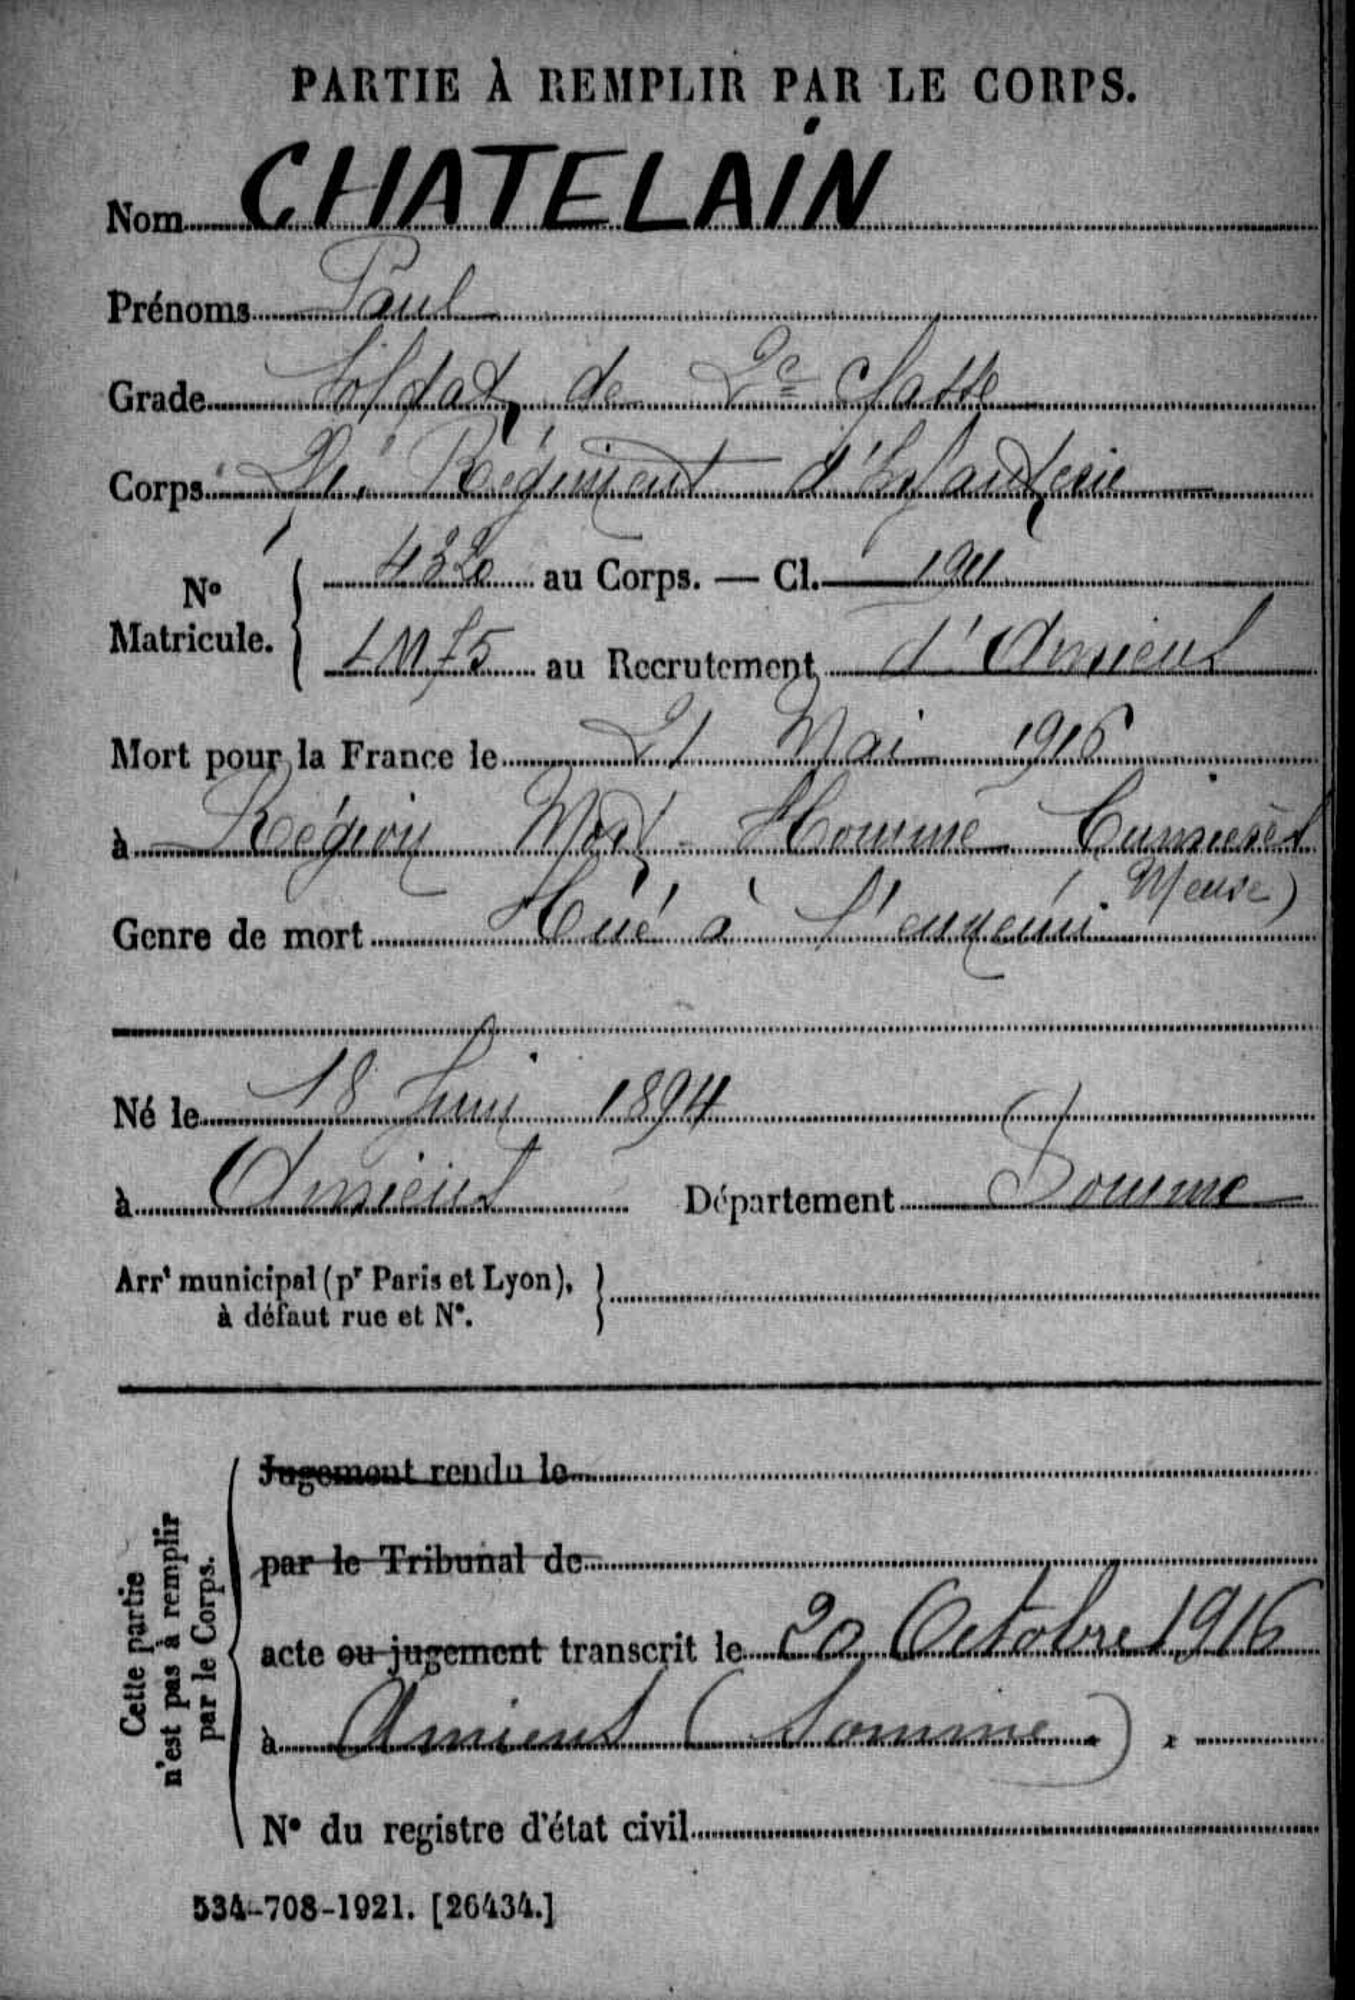 PARTIE À REMPLIR PAR LE CORPS.
Nom CHATELAIN
Prénoms Paul
Grade Soldat de 2e Classe
Corps Régiment d'Infanterie
No Matricule. 4320 au Corps. — Cl. 1911
au Recrutement d'Amiens
Mort pour la France le 21 Mai 1916
à Région Mort-Homme Cumières
Meuse)
Genre de mort Tué à l'ennemi
Né le 18 Juin 1894
à Amiens Département Somme
Arrt municipal (pr Paris et Lyon),
à défaut rue et No.
Cette partie
n'est pas à remplir
par le Corps.
Jugement rendu le
par le Tribunal de
acte ou jugement transcrit le 20 Octobre 1916
à Amiens (Somme)
No du registre d'état civil
534-708-1921. [26434.]